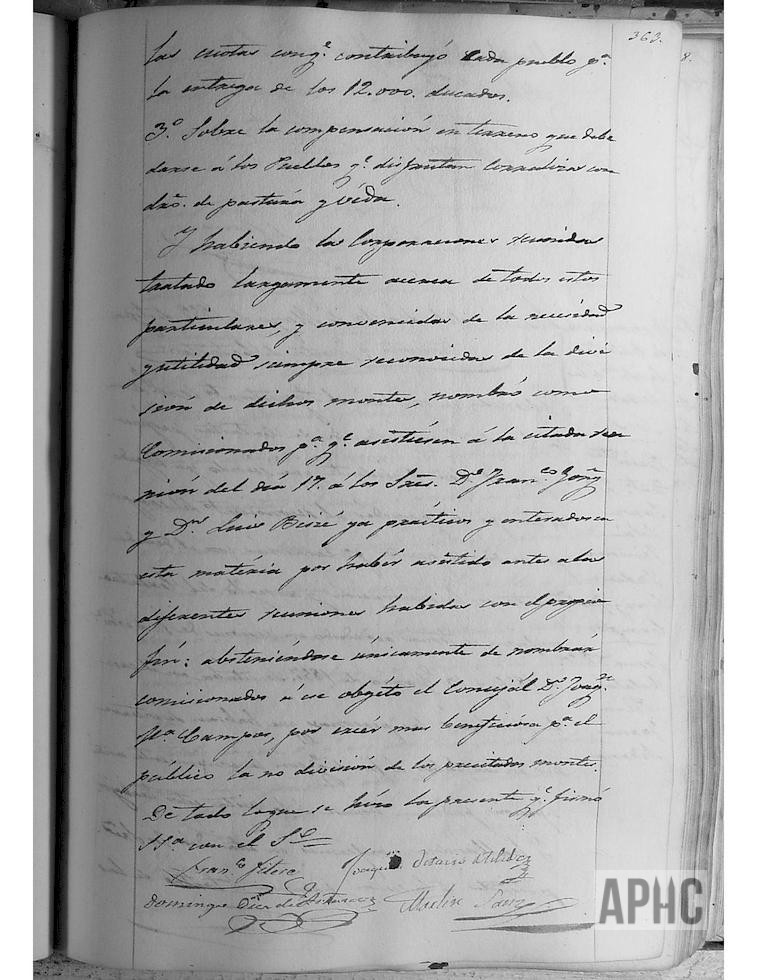 363.
las cuotas conq.e contribuyó cada pueblo p.a
la entrega de los 12.000. ducados.
3.o Sobre la compensación en terreno que debe
darse á los Pueblos q.e disfrutan Corralizas con
dro. de pastura y leña.
Y habiendo las Corporaciones reunidas
tratado largamente acerca de todos estos
particulares, y convencidas de la necesidad
y utilidad siempre reconocidas de la divi
sión de dichos montes, nombró como
Comisionados p.a q.e asistiesen á la citada reu
nión del día 17. á los Sres. D.n Fran.co
y D.n Luis ya prácticos y enterados en
esta matéria por habér asistido antes a las
diferentes reuniones habidas con el propio
fin: absteniéndose únicamente de nombrar
comisionados á ese obgéto el Concejál D.n Joaq.n
M.a Campos, por creér mas beneficiosa p.a el
público la no división de los precitados montes.
De todo lo que se hizo la presente q.e firmó
S.S.a con el S.o
Fran.co Joaquin
Domingo
8.
APHC